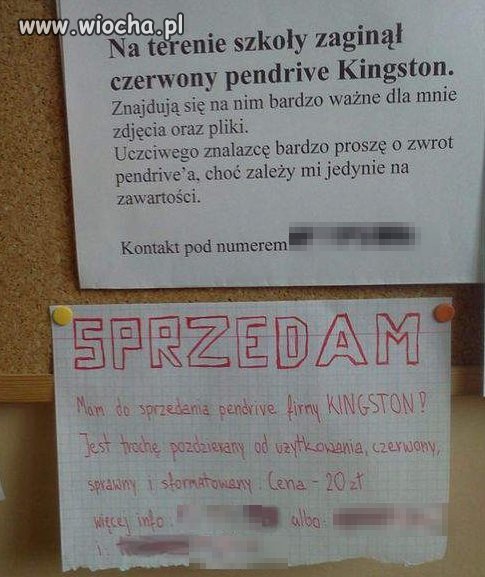 www.wiocha.pl
Na terenie szkoły zaginął
czerwony pendrive Kingston.
Znajdują się na nim bardzo ważne dla mnie
zdjęcia oraz pliki.
Uczciwego znalazcę bardzo proszę o zwrot
pendrive’a, choć zależy mi jedynie na
zawartości.
Kontakt pod numerem
SPRZEDAM
Mam do sprzedania pendrive firmy KINGSTON!
Jest trochę pozdzierany od użytkowania, czerwony,
sprawny i sformatowany. Cena - 20 zł
więcej info: albo:
i: